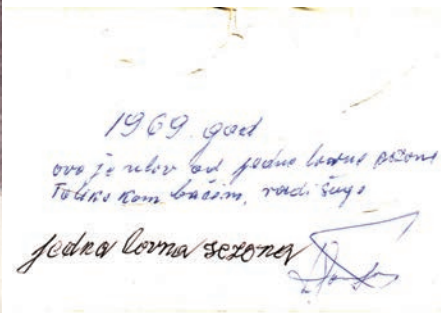 1969. god
ovo je ulov od jedne lovne sezone
Toliko kom
jedna lovna sezona